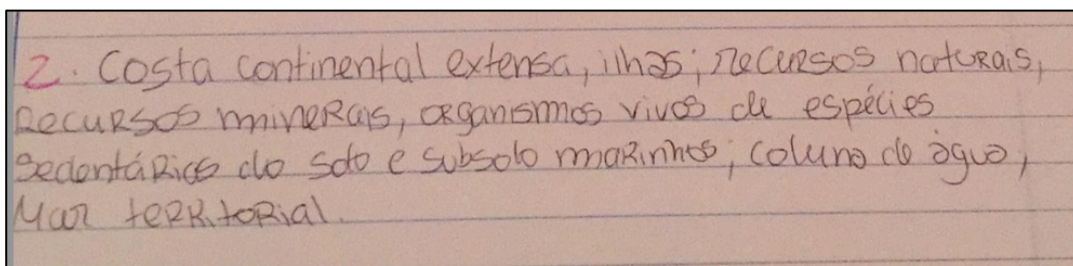 2. Costa continental extensa, ilhas; recursos naturais,
Recursos minerais, organismos vivos de espécies
sedentárias do solo e subsolo marinhos; coluna de àgua,
Mar territorial.